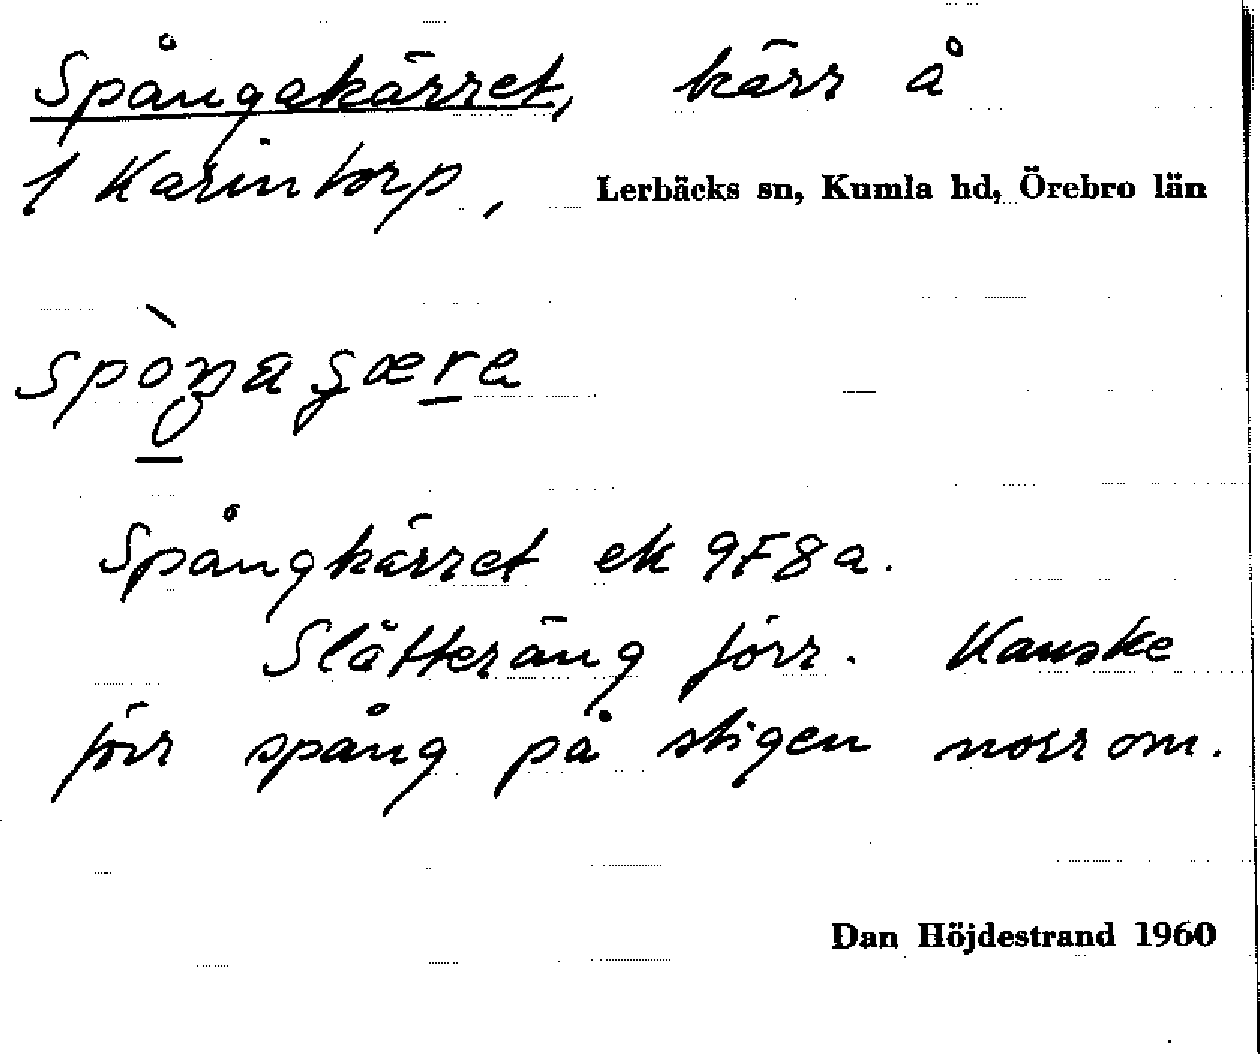 Spångakärret, kärr å
1 Karintorp, Lerbäcks sn, Kumla hd, Örebro län
Spångkärret ek 9F8a.
Slätteräng förr. Kanske
förr spång på stigen norr om.
Dan Höjdestrand 1960